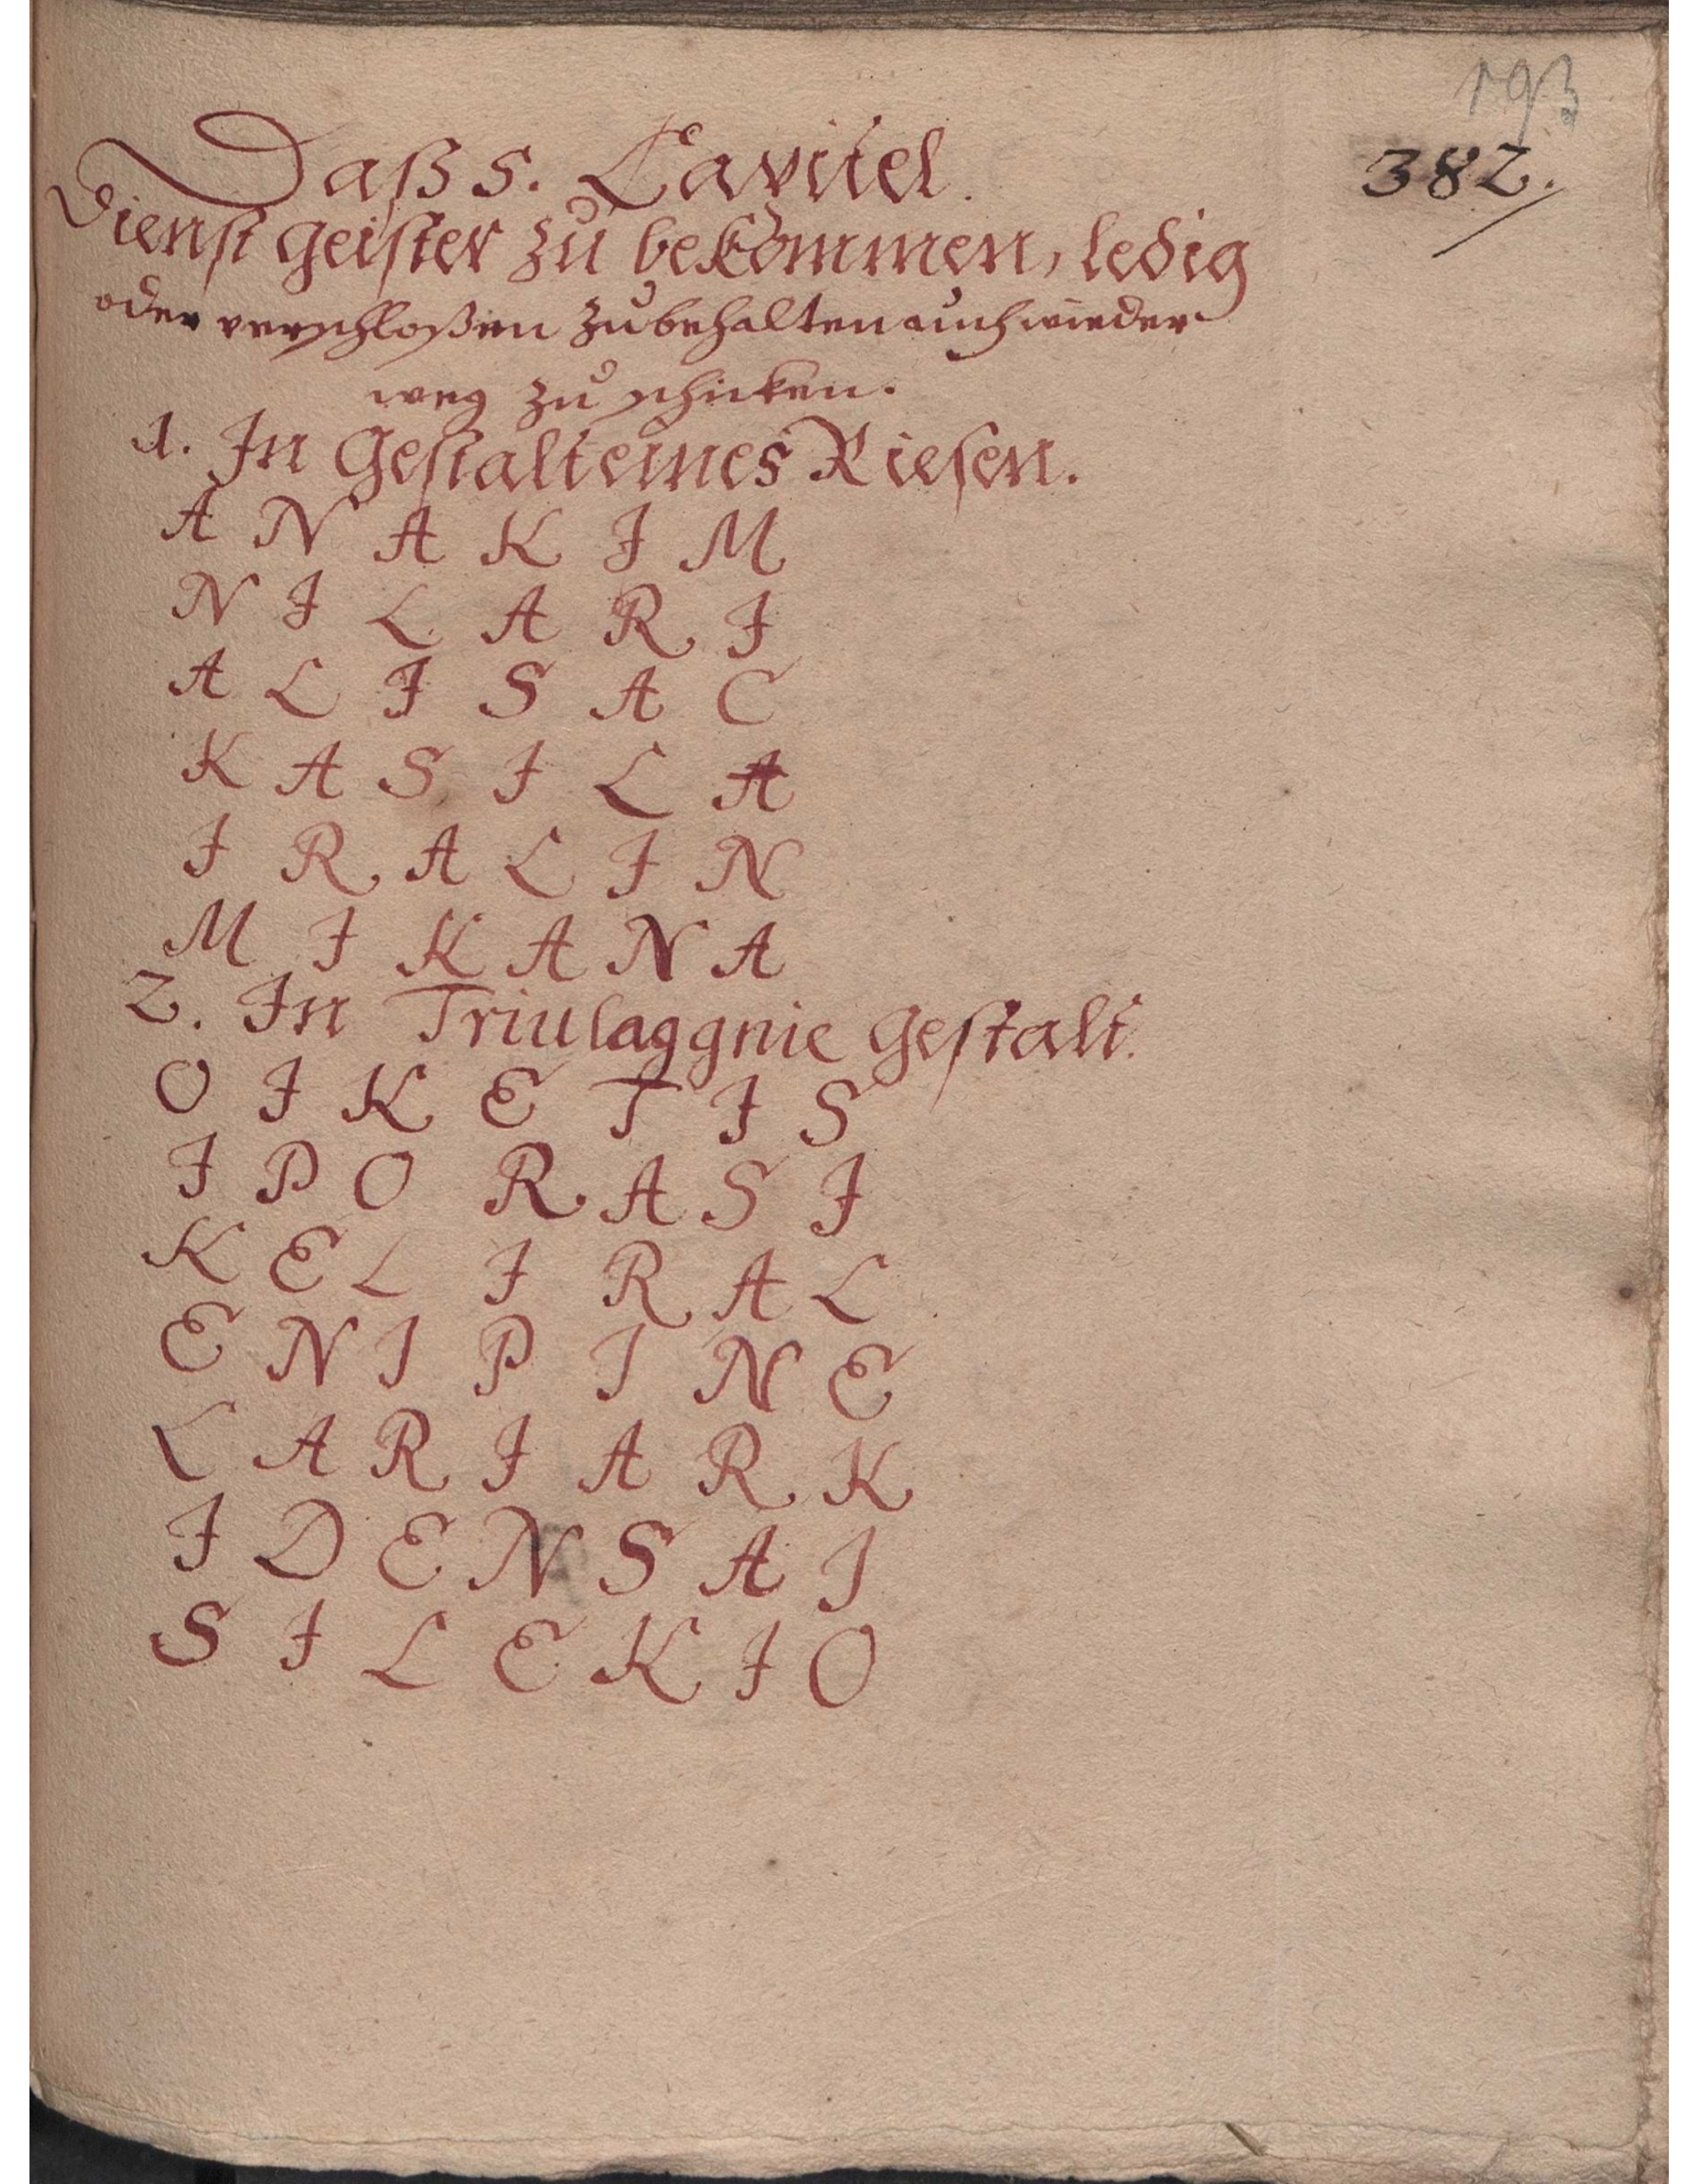 193
382.
Daß 5. Capitel.
Dienst Geister zu bekommen, ledig
oder verschloßen zubehalten auch wieder
weg zu schicken.
1. In Gestalt eines Riesen.
A N A K I M
N I L A R I
A L I S A C
K A S I L A
I R A L I N
M I K A N A
2. In Triulaggnie Gestalt.
O I K E T I S
I P O R A S I
K E L I R A L
E N I P I N E
L A R I A R K
I D E N S A I
S I L E K I O